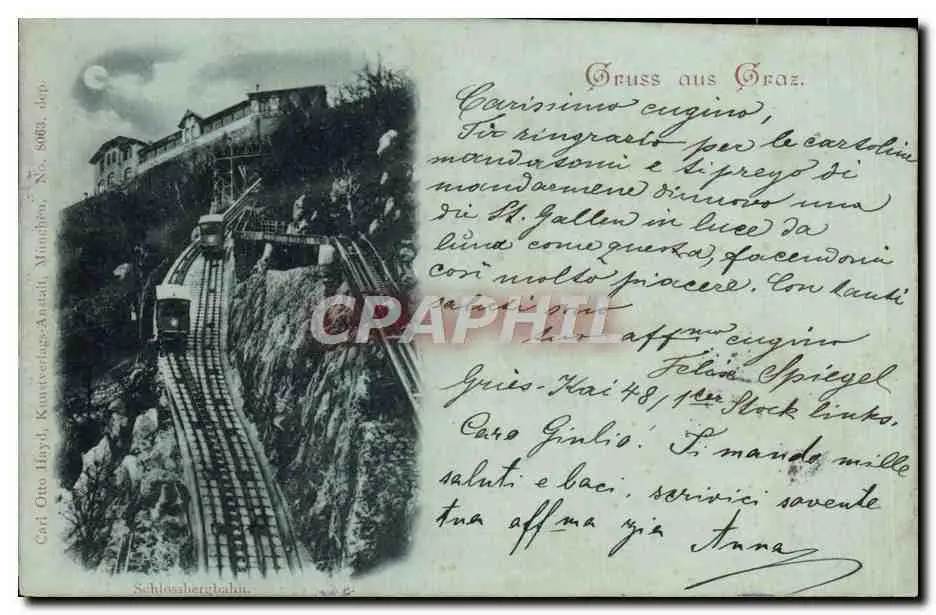 Gruss aus Graz.
Carissimo cugino,
Tir ringrazio per le cartoline
mandatomi e ti prego di
mandarmene dinuovo una
die St. Gallen in luce da
luna come questa, facendomi
così molto piacere. Con tanti
saluti sno
tuo affmo cugino
Felix Spiegel
Gries-Kai 48, 1ter Stock links.
Caro Giulio! Ti mando mille
saluti e baci, scrivici sovente
tua affma zia
Anna
Schlossbergbahn.
Carl Otto Hayd, Kunstverlags-Anstalt, München, No. 8063. dep.
CPAPHIL